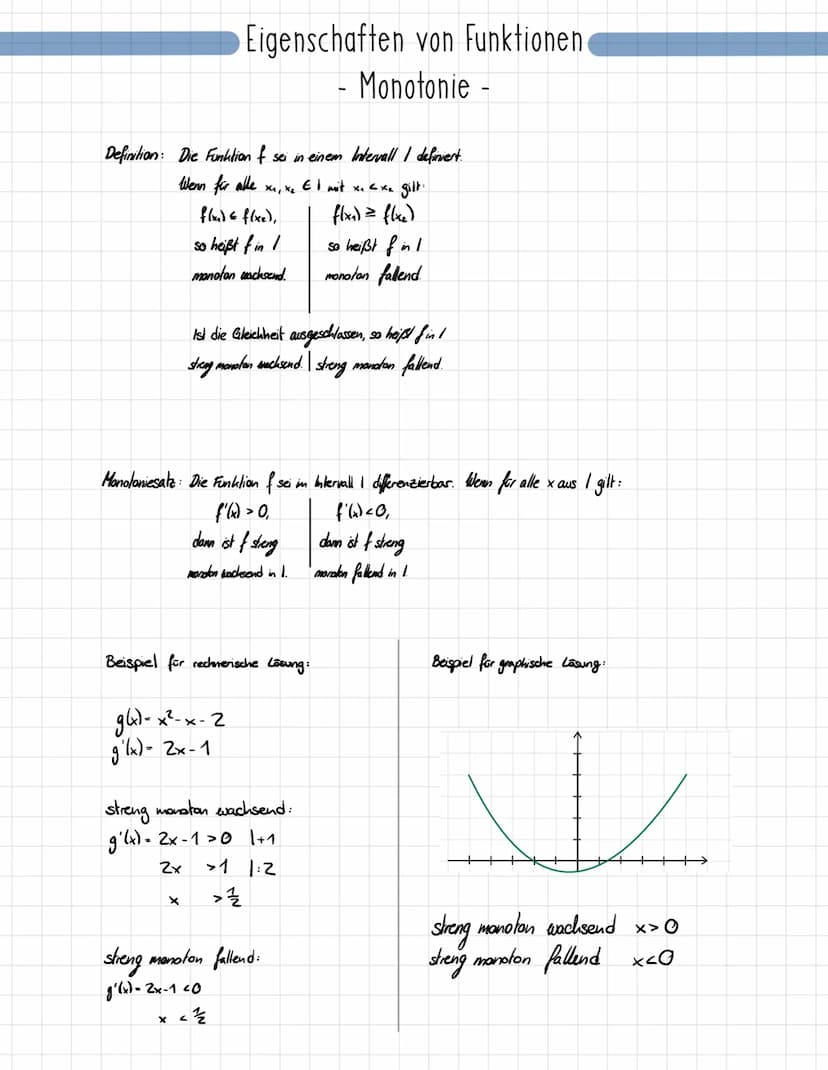 Eigenschaften von Funktionen
- Monotonie -
Definition: Die Funktion f sei in einem Intervall I definiert.
Wenn für alle x₁, x₂ ∈ I mit x₁ < x₂ gilt:
f(x₁) ≤ f(x₂), | f(x₁) ≥ f(x₂)
so heißt f in I | so heißt f in I
monoton wachsend. | monoton fallend.
Ist die Gleichheit ausgeschlossen, so heißt f in I
streng monoton wachsend. | streng monoton fallend.
Monotoniesatz: Die Funktion f sei im Intervall I differenzierbar. Wenn für alle x aus I gilt:
f'(x) > 0, | f'(x) < 0,
dann ist f streng | dann ist f streng
monoton wachsend in I. | monoton fallend in I.
Beispiel für rechnerische Lösung:
g(x) = x² - x - 2
g'(x) = 2x - 1
streng monoton wachsend:
g'(x) = 2x - 1 > 0 |+1
2x > 1 |:2
x > 1/2
streng monoton fallend:
g'(x) = 2x - 1 < 0
x < 1/2
Beispiel für graphische Lösung:
streng monoton wachsend x > 0
streng monoton fallend x < 0